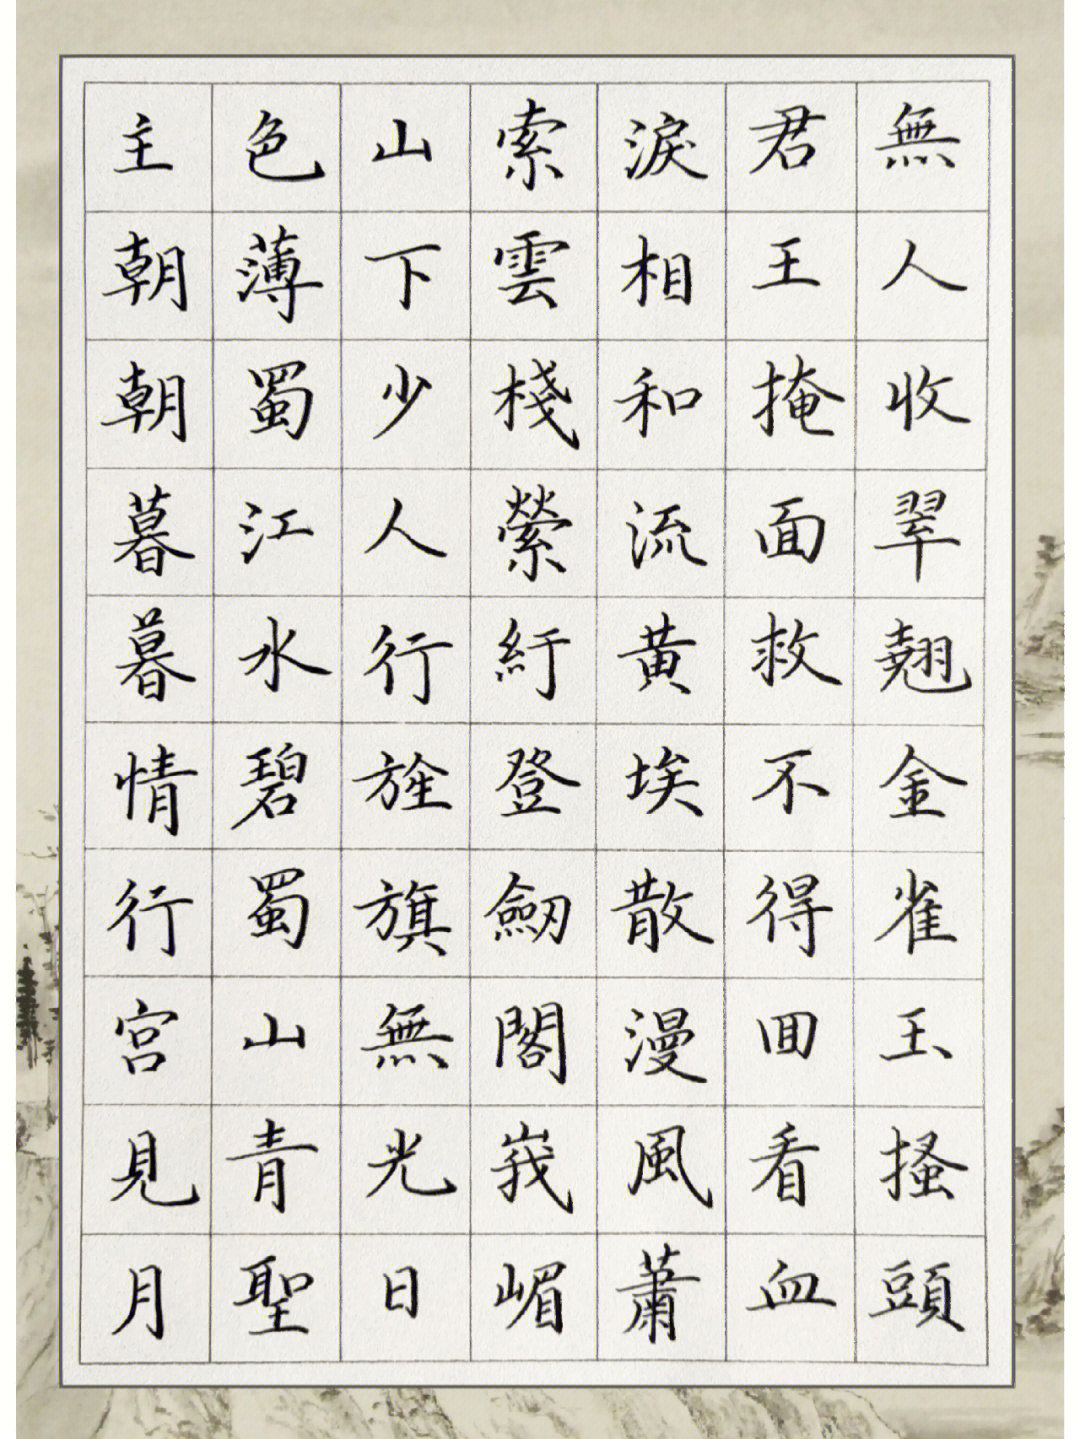 無人收翠翹金雀玉搔頭
君王掩面救不得回看血
淚相和流黃埃散漫風蕭
索雲棧縈紆登劒閣峩嵋
山下少人行旌旗無光日
色薄蜀江水碧蜀山青聖
主朝朝暮暮情行宮見月